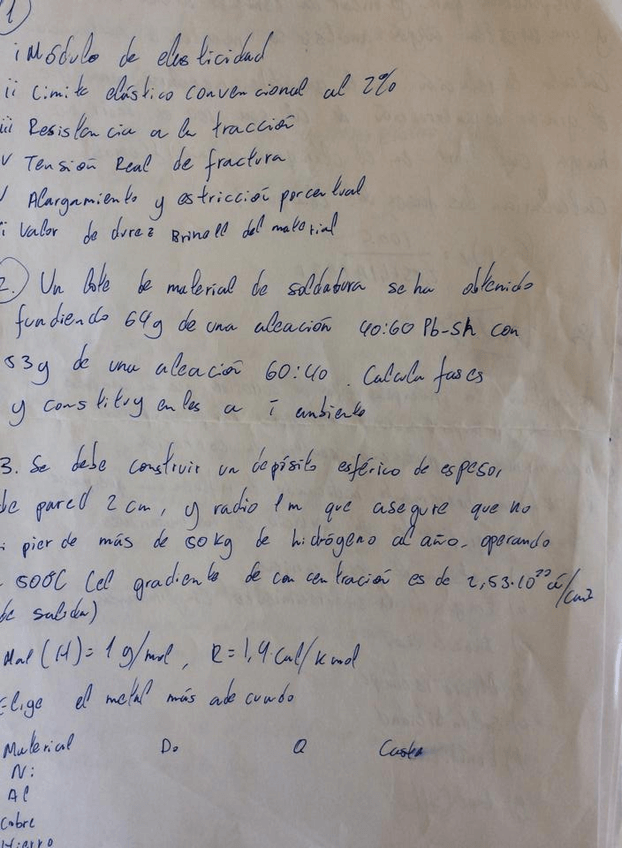 1)
i Módulo de elasticidad
ii Limite elástico convencional al 2%
iii Resistencia a la tracción
v Tensión Real de fractura
v Alargamiento y estricción porcentual
i Valor de dureza Brinell del material
2.) Un lote de material de soldadura se ha obtenido
fundiendo 64g de una aleación 40:60 Pb-Sn con
53g de una aleación 60:40. Calcula fases
y constituyentes a T ambiente
3. Se debe construir un depósito esférico de espesor
de pared 2 cm, y radio 1m que asegure que no
pierde más de 50kg de hidrógeno al año, operando
500ºC (el gradiente de concentración es de 2,53·10²² at/cm²
de salida)
Mat (H) = 1 g/mol, R = 1,9 cal/k mol
Elige el metal más adecuado
Material Do Q Coste
Ni
Al
Cobre
Hierro